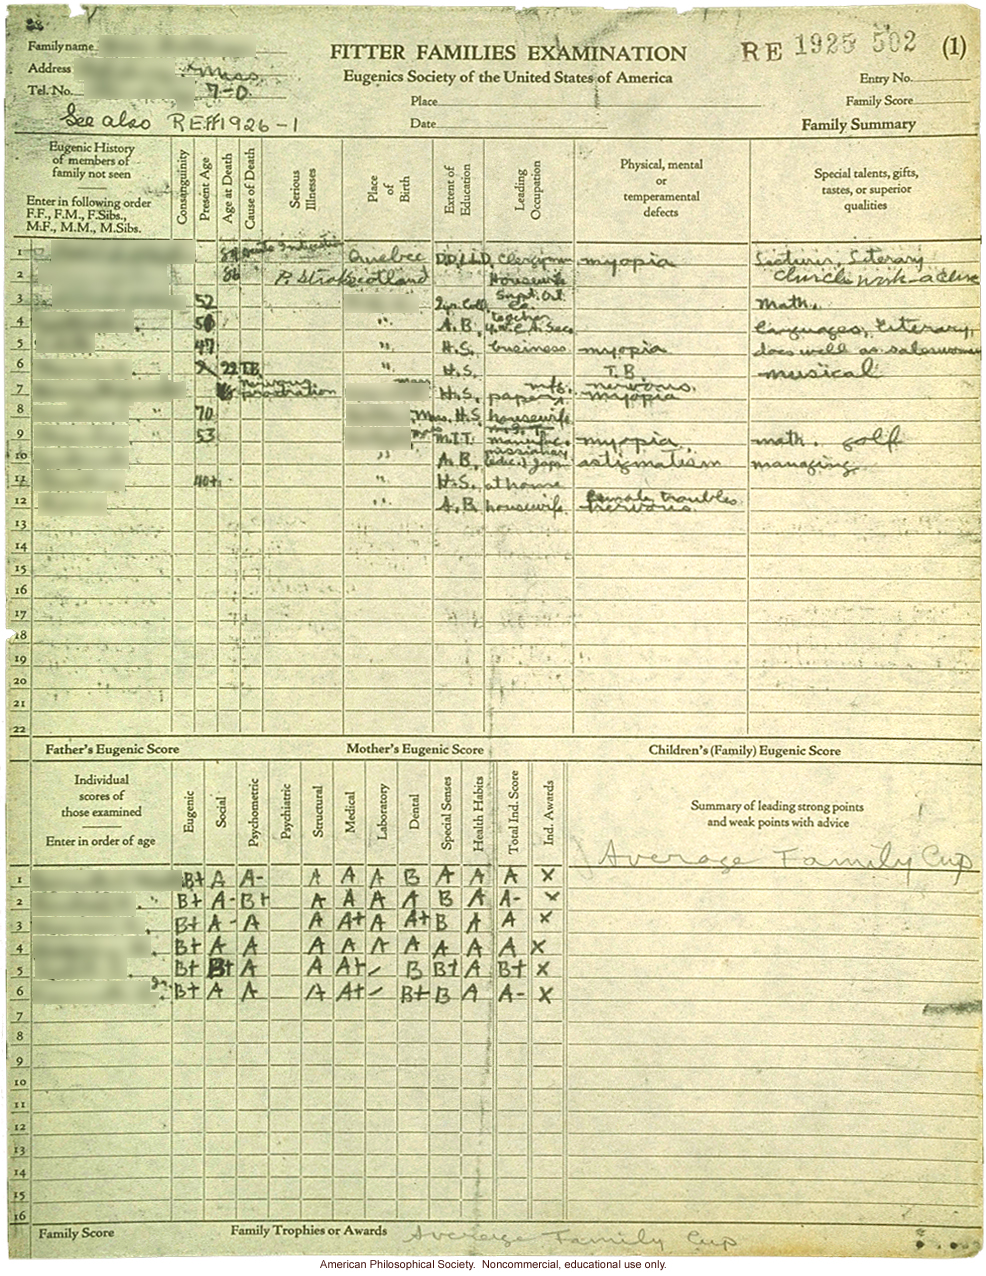 Family name
FITTER FAMILIES EXAMINATION
RE 1925 502 (1)
Address Mass
Eugenics Society of the United States of America
Entry No.
Tel. No. 7-0
Place
Family Score
See also RE#1926-1
Date
Family Summary
Eugenic History
of members of
family not seen
Enter in following order
F.F., F.M., F.Sibs.,
M.F., M.M., M.Sibs.
Consanguinity
Present Age
Age at Death
Cause of Death
Serious
Illnesses
Place
of
Birth
Extent of
Education
Leading
Occupation
Physical, mental
or
temperamental
defects
Special talents, gifts,
tastes, or superior
qualities
1 Quebec D.D., LL.D, Clergyman myopia Literary
2 86 Scotland Housewife Church work
3 52 2yr. Coll. Supt. Math.
4 50 " A.B. teacher languages, literary,
5 47 " H.S. business myopia does well as
6 22 T.B. H.S. T.B. musical
7 nervous prostration Mass H.S. paper mfg. nervous. myopia
8 " 70 Mass. H.S. housewife
9 53 Mass M.I.T. myopia math. golf
10 " A.B. missionary Japan astigmatism managing
11 40+ H.S. at home
12 " A.B. housewife. female troubles nervous.
13
14
15
16
17
18
19
20
21
22
Father's Eugenic Score Mother's Eugenic Score Children's (Family) Eugenic Score
Individual
scores of
those examined
Enter in order of age
Eugenic
Social
Psychometric
Psychiatric
Structural
Medical
Laboratory
Dental
Special Senses
Health Habits
Total Ind. Score
Ind. Awards
Summary of leading strong points
and weak points with advice
Average Family Cup
1 B+ A A- A A A B A A A X
2 " B+ A- B+ A A A A B A A- X
3 B+ A- A A A+ A A+ B A A X
4 B+ A A A A A A A A A X
5 B+ B+ A A A+ - B B+ A B+ X
6 Jr. B+ A A A A+ - B+ B A A- X
7
8
9
10
11
12
13
14
15
16
Family Score Family Trophies or Awards Average Family Cup
American Philosophical Society. Noncommercial, educational use only.